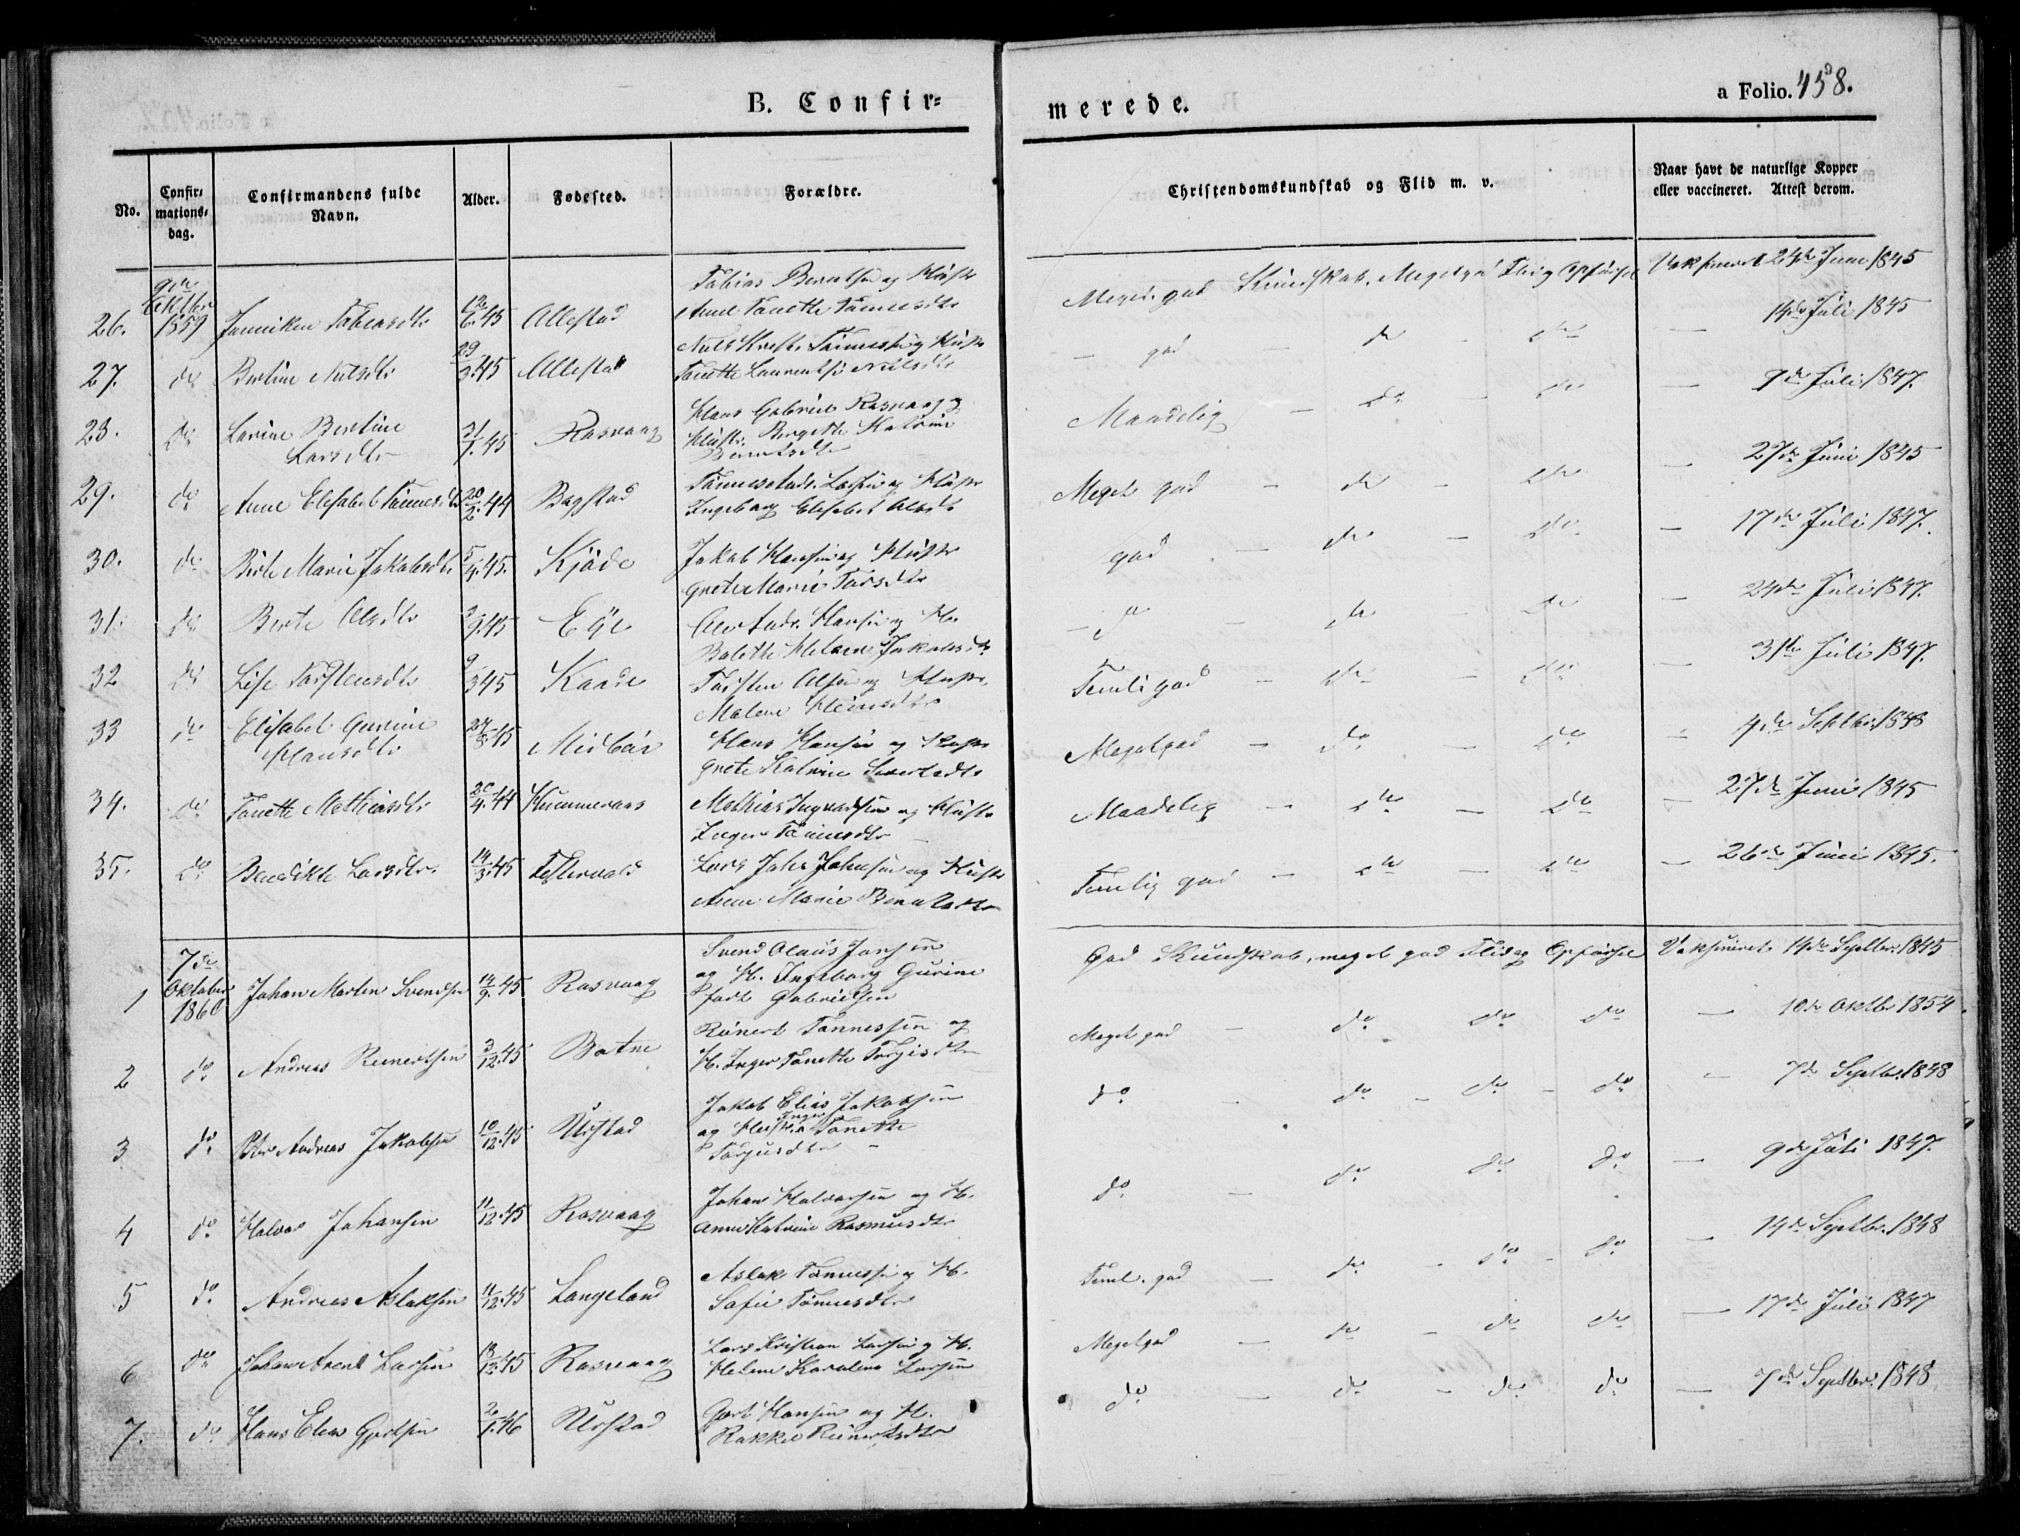 B. Confir=
merede.
a Folio. 458.
No.
Confir=
mations=
dag.
Confirmandens fulde
Navn.
Alder.
Fødested.
Forældre.
Christendomskundskab og Flid m. v.
Naar havt de naturlige Kopper
eller vaccineret. Attest derom.
9de
Oktbr
26. 1859 Jenniken Tobiasdtr 12/6.45 Allestad
Tobias Berntsen og Hustr
Anne Tonette Tønnesdtr
Meget god Kundskab. Meget god Flid og Opførsel Vaksineret 24de Juni 1845
27. do Bertine Nilsdtr 29/3.45 Allestad
Nils Tønnessen og Hustr
Tonette Nilsdtr
— god do do — 14de Juli 1845
28. do Larine Bertine
Larsdtr 31/7.45 Rasvaag
Hans Gabriel Rasvaag
Hustr. Bergitte Katrine
Berntsdtr
Maadelig — do — do — 9de Juli 1847.
29. do Anne Elisabet Tønnesdtr 20/2.44 Bogstad
Tønnes Larsen og Hustr
Ingeborg Elisabet Olsdtr
Meget god — do — do — 27de Juni 1845
30. do Berte Marie Jakobsdtr 5/4.45. Kjøde
Jakob Hansen og Hustr
Grete Marie Larsdtr
god — do — do — 17de Juli 1847.
31. do Berte Olsdtr 3/9.45 Eye
Ole Andr. Hansen og H.
Bolette Helene Jakobsdtr
— do — do — do — 24de Juli 1847.
32 do Lise Torstensdtr 9/3 45 Kaade
Torsten Olsen og Hustr.
Malene
Temli god — do — do — 31te Juli 1847.
33 do Elisabet Gurine
Hansdtr 24/3.45 Midbøe
Hans Hansen og Hustr
Grete Katrine Sivertsdtr
Meget god — do — do — 4de Septbr. 1848
34. do Tonette Mathiasdtr 20/4.44 Hummeraas
Mathias Ingvaldsen og Hustr
Inger Tønnesdtr —
Maadelig — do — do — 27de Juni 1845
35. do Benedikte Larsdtr. 14/3.45 Festervold
Lars Johs Johnsen og Hustr
Anne Marie Berntsdtr
Temlig god — do — do — 26de Juni 1845.
7de
Oktober
1 1860 Johan Martin Svendsen 14/9.45 Rasvaag
Svend Olaus
og H. Ingeborg Gurine
født Gabrielsen
God Kundskab, meget god Flid og Opførsel Vaksineret 14de Septbr. 1845
2 do Andreas Reinertsen 3/12.45 Botne
Reinert Tønnessen og
H. Inger Tonette Torgisdtr
Meget god — do do do — 10de Oktbr 1854.
3 do Peder Andreas Jakobsen 10/12.45 Urstad
Jakob Elias Jakobsen
og Hustru Inger Tonette
Torjusdtr —
do — do — do — do — 7de Septbr. 1848
4 do Halvor Johansen 11/12.45 Rasvaag
Johan Halvorsen og H.
Anne Katrine Rasmusdtr
do. — do do do — 9de Juli 1847.
5 do Andreas Aslaksen 11/12.45 Langeland
Aslak Tønnessen og H.
Sofie Tønnesdtr
Teml. god — do — do — do — 14de Septbr. 1848
6 do Johan Arent Larsen 18/12.45 Rasvaag
Lars Kristian Larsen og H.
Helene Karoline Larsen
Meget god — do — do do — 17de Juli 1847
7. do Hans Elias Gjertsen 2/1.46 Urstad
Gjert Hansen og H.
Rakkel Reinertsdtr
do. — do — do do — 7de Septbr. 1848